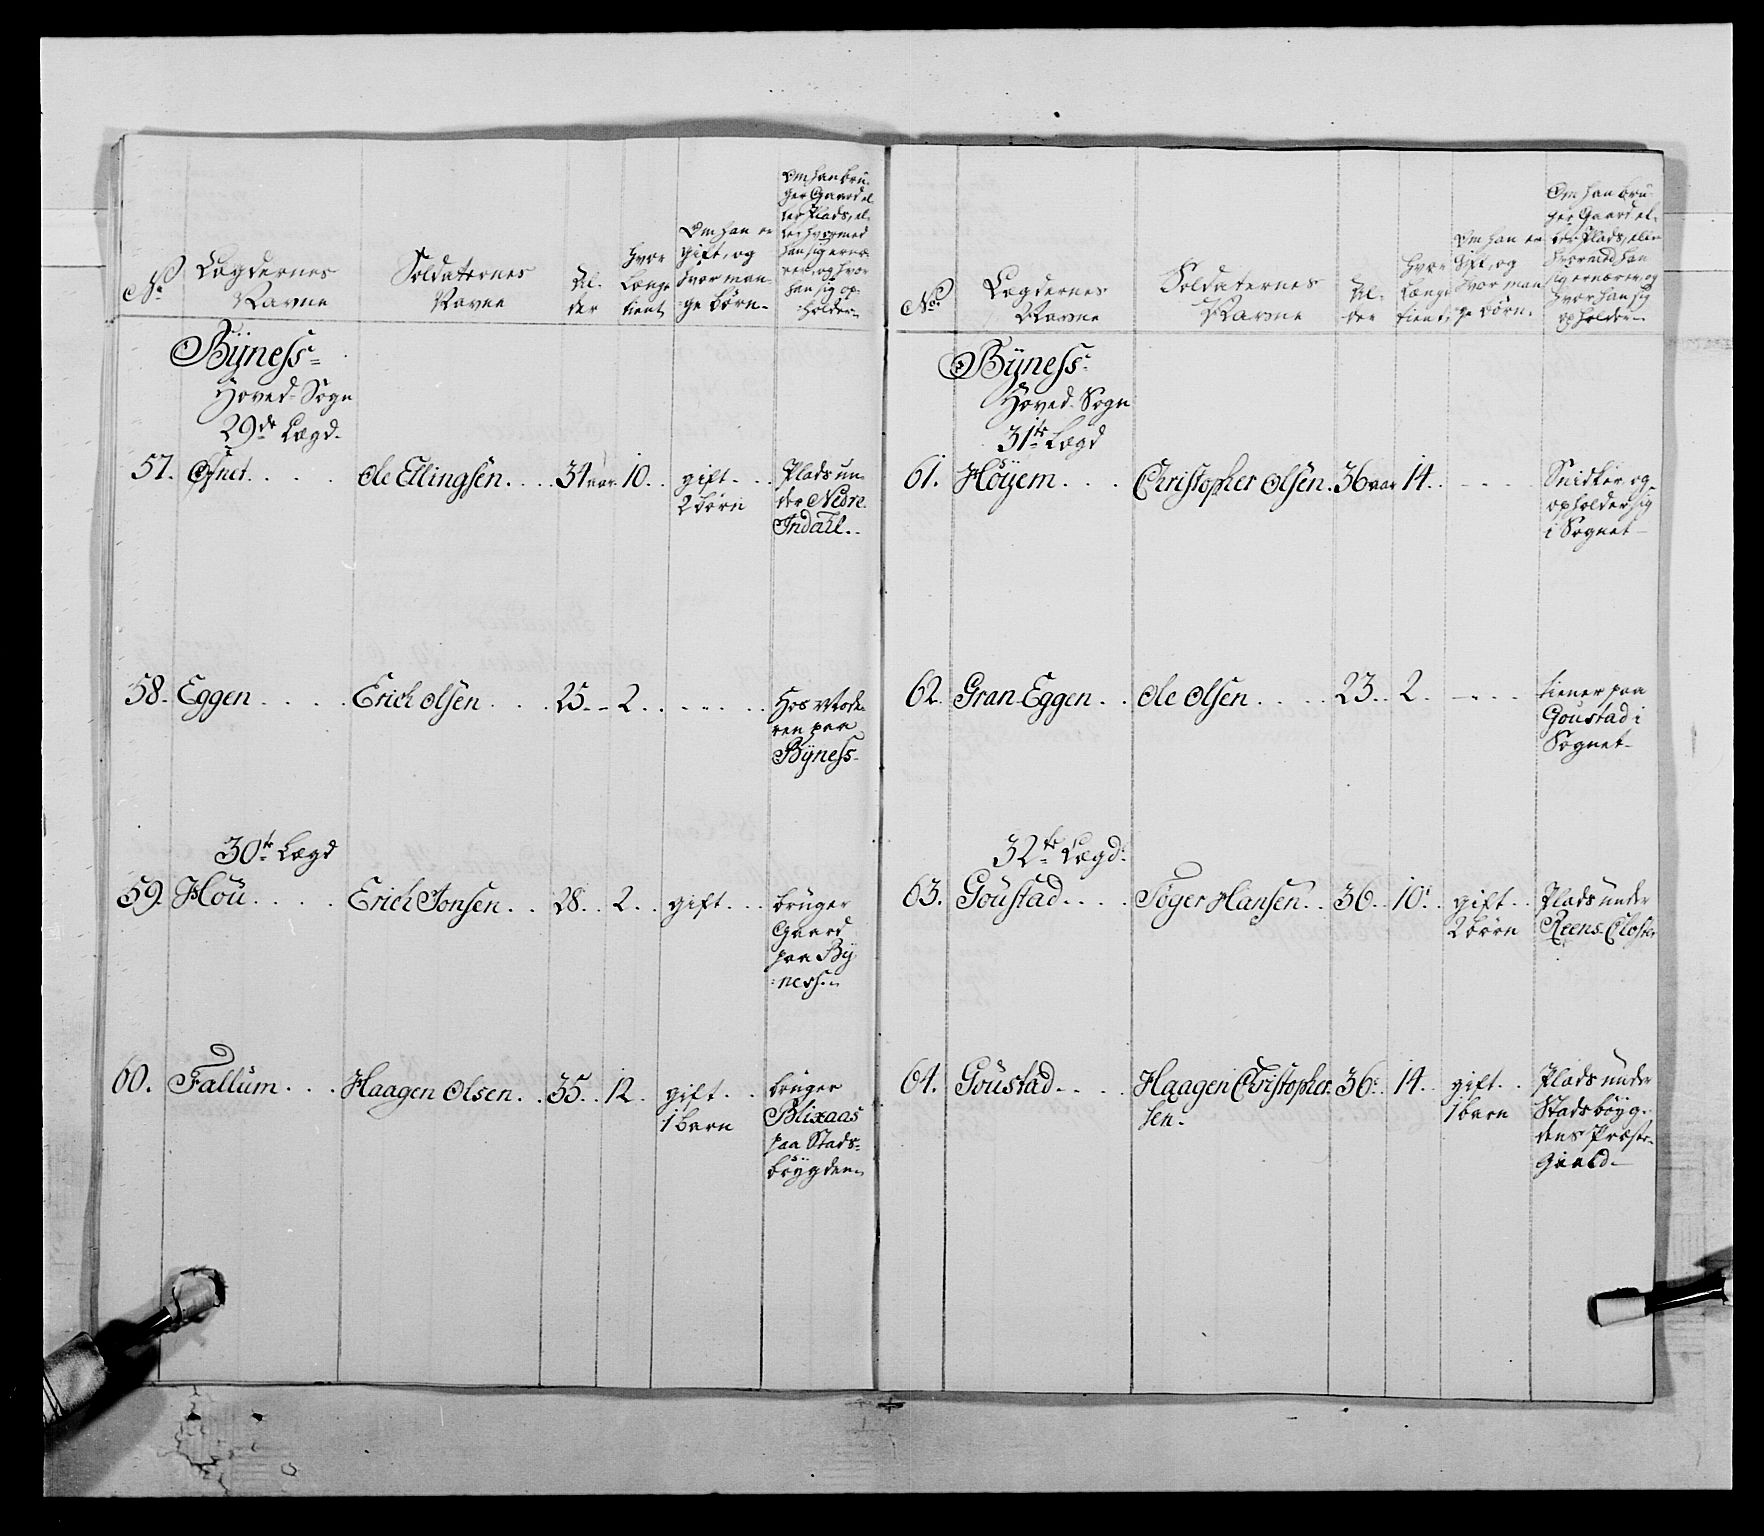 No
Lægdernes
Navne
Soldaternes
Navne
Al-
der
hvor
Længe
tient
Om han er
gift, og
hvor man-
ge børn.
Om han bru-
ger Gaard el-
ler Plads, el-
ler hvormed
han sig ernæ-
rer, og hvor
han sig op-
holder
Bÿness
Hoved-Sogn
29de Lægd.
57. Ole Ellingsen 34 aar 10. gift
2 børn
Plads un-
der Nedre
Indahl.
58. Eggen Erich Olsen 25 2
Hos Mode-
ren paa
Bÿness
30te Lægd
59. Höü Erich Jonsen 28 2 gift
brüger
Gaard
paa By
ness.
60. Fallüm Haagen Olsen 35 12 gift
1 barn
brüger
Blixaas
paa Stads-
böygden
No
Lægdernes
Navne
Soldaternes
Navne
Al-
der
hvor
Længe
tient
Om han er
gift, og
hvor man
ge børn.
Om han bru-
ger Gaard el-
ler Plads, eller
hvormed han
sig ernærer, og
hvor han sig
opholder
Bÿness
Hoved-Sogn
31te Lægd
61. Höÿem Christopher Olsen 36 aar 14
Snidker og
opholder sig
i Sognet
62. Gran Eggen Ole Olsen 23 2
tiener paa
Goustad i
Sognet
32te Lægd
63. Goüstad Söger Hansen 36 10 gift
2 børn
Plads under
Reens Closter
64. Goüstad Haagen Christopher-
sen
36 14 gift
1 barn
Plads under
Stadsböyg-
dens Præste-
Gield